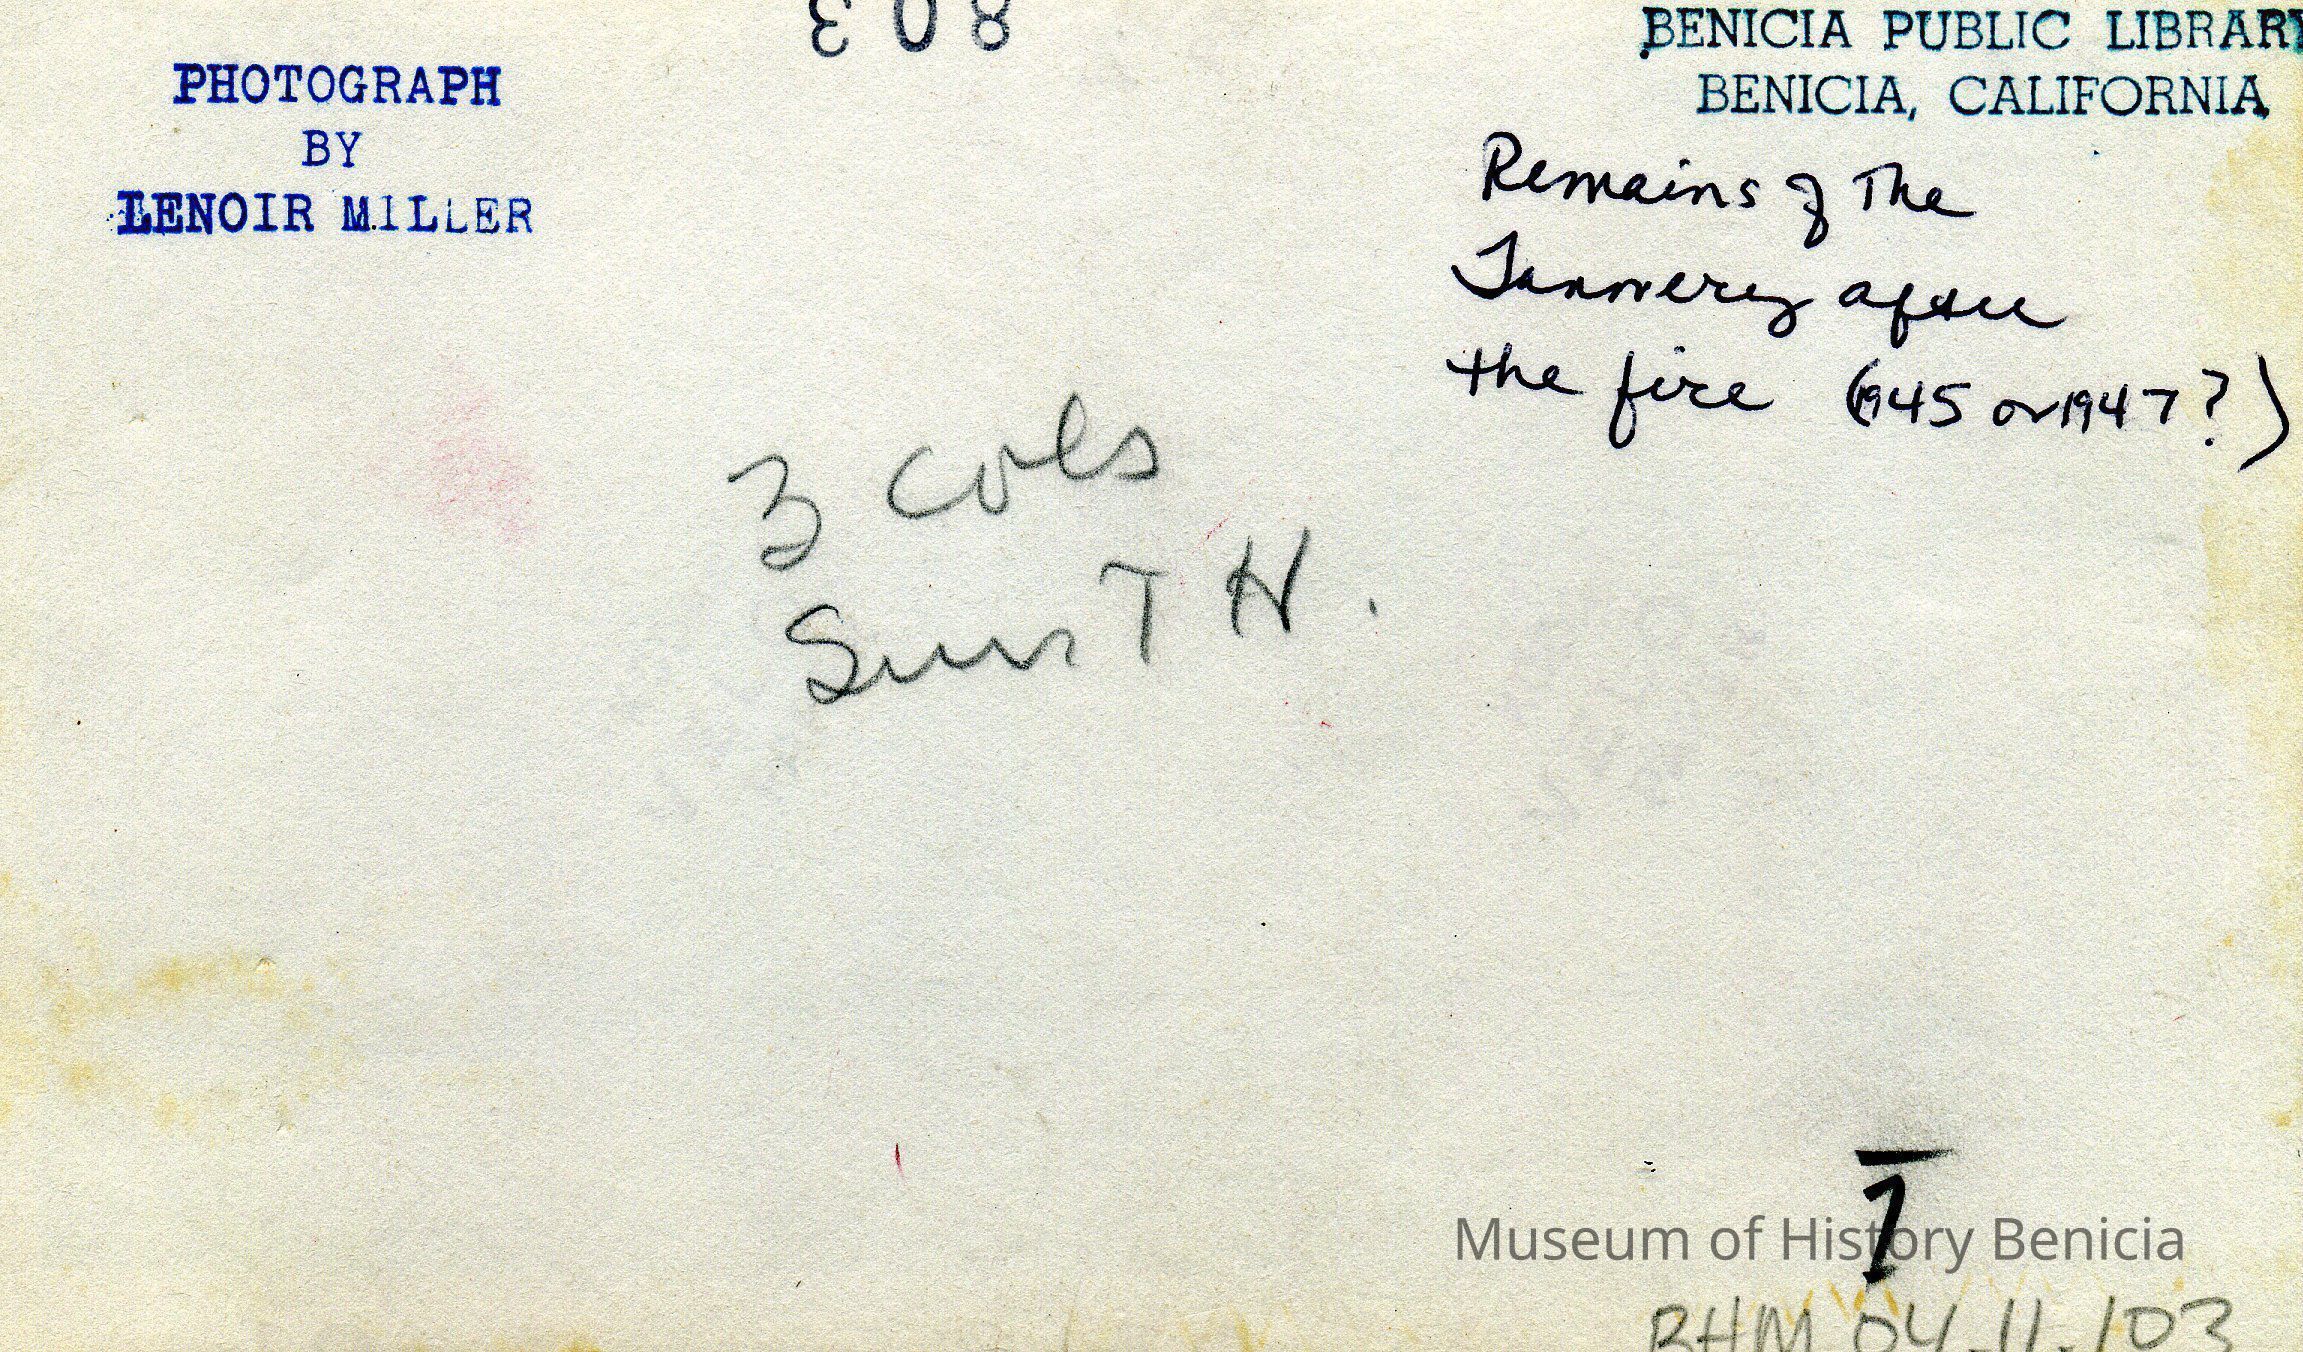 803
PHOTOGRAPH
BY
LENOIR MILLER
BENICIA PUBLIC LIBRARY
BENICIA, CALIFORNIA
Remains of The
Tannery after
the fire (1945 or 1947?)
3 cols
Sun T H.
7
Museum of History Benicia
BHM 04.11.103